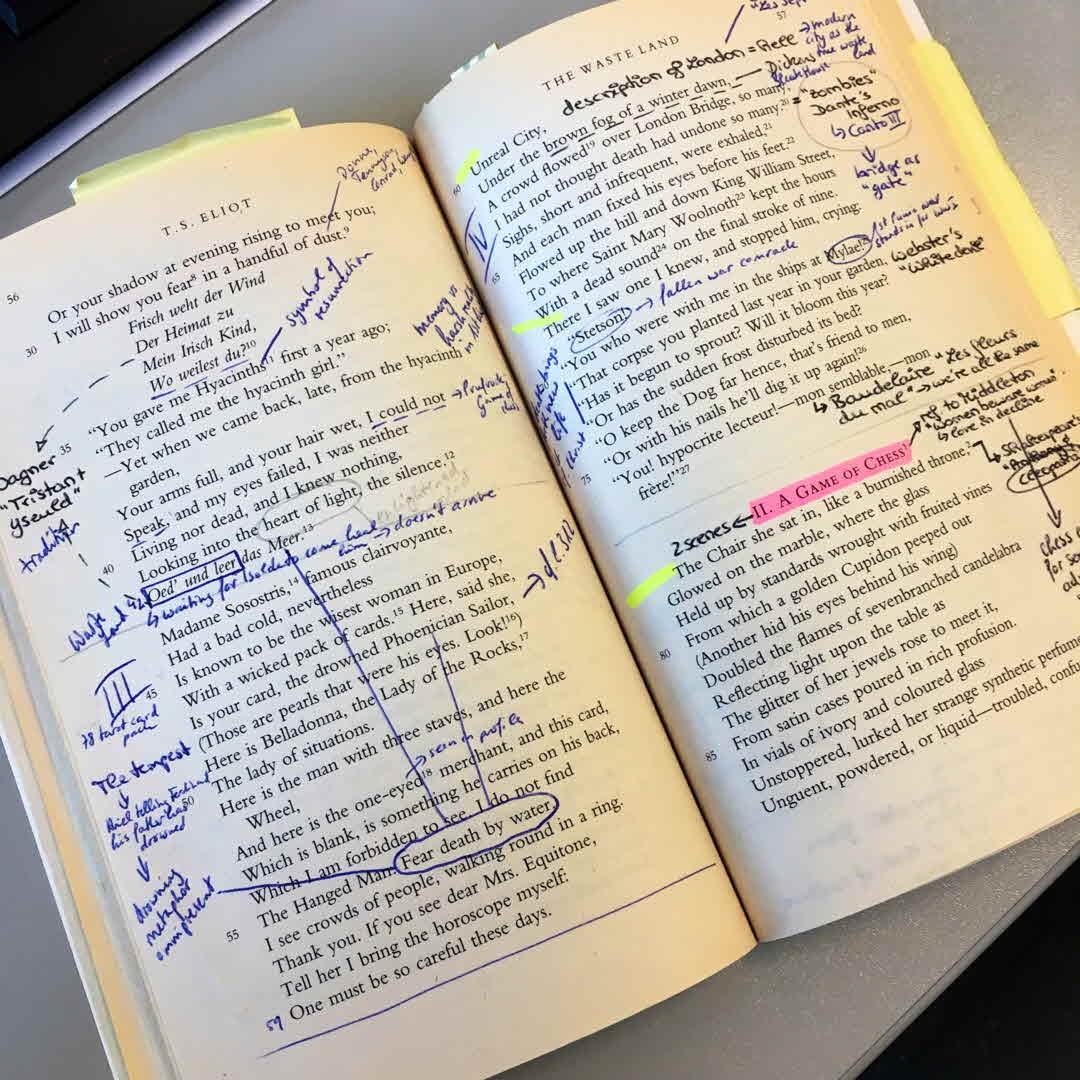 56
T.S. ELIOT
Donne,
Or your shadow at evening rising to meet you;
I will show you fear⁸ in a handful of dust.⁹
Frisch weht der Wind
Der Heimat zu
30
Mein Irisch Kind,
Wo weilest du?¹⁰
symbol of
"You gave me Hyacinths¹¹ first a year ago;
35
"They called me the hyacinth girl."
—Yet when we came back, late, from the hyacinth
garden,
Your arms full, and your hair wet, I could not
Speak, and my eyes failed, I was neither
Living nor dead, and I knew nothing,
Looking into the heart of light, the silence.¹²
40
Oed' und leer das Meer.¹³
"Tristan +
Yseuld"
tradition
↳ waiting for Isolde to come heal
him → doesn't arrive
Madame Sosostris,¹⁴ famous clairvoyante,
Had a bad cold, nevertheless
Is known to be the wisest woman in Europe,
With a wicked pack of cards.¹⁵ Here, said she,
45
Is your card, the drowned Phoenician Sailor,
(Those are pearls that were his eyes. Look!¹⁶)
Here is Belladonna, the Lady of the Rocks,¹⁷
The lady of situations.
Here is the man with three staves, and here the
50
Wheel,
And here is the one-eyed¹⁸ merchant, and this card,
Which is blank, is something he carries on his back,
Which I am forbidden to see. I do not find
The Hanged Man. Fear death by water.
55
I see crowds of people, walking round in a ring.
Thank you. If you see dear Mrs. Equitone,
Tell her I bring the horoscope myself:
One must be so careful these days.
59
III
78 tarot card
pack
The tempest
↓
Ariel telling Ferdinand
his father has
drowned
↓
drowning
metaphor
omnipresent
seen in profile
THE WASTE LAND
57
description of London = Hell
→ modern
city as the
true waste
land
— Dickens
Unreal City,
60
Under the brown fog of a winter dawn,
A crowd flowed¹⁹ over London Bridge, so many,
I had not thought death had undone so many.²⁰
Sighs, short and infrequent, were exhaled.²¹
And each man fixed his eyes before his feet.²²
Flowed up the hill and down King William Street,
65
To where Saint Mary Woolnoth²³ kept the hours
With a dead sound²⁴ on the final stroke of nine.
There I saw one I knew, and stopped him, crying:
"Stetson!
→ fallen war comrade
"You who were with me in the ships at Mylae!²⁵
"That corpse you planted last year in your garden,
"Has it begun to sprout? Will it bloom this year?
"Or has the sudden frost disturbed its bed?
"O keep the Dog far hence, that's friend to men,
75
"Or with his nails he'll dig it up again!²⁶
"You! hypocrite lecteur!—mon semblable,—mon
frère!"²⁷
IV
= "Bombies"
Dante's
Inferno
↳ Canto III
↓
bridge as
"gate"
Webster's
↳ Baudelaire "Les fleurs
du mal" → we're all the same
ref to Middleton
"Women beware women"
2 scenes ←
II. A GAME OF CHESS¹
The Chair she sat in, like a burnished throne,²
Glowed on the marble, where the glass
Held up by standards wrought with fruited vines
80
From which a golden Cupidon peeped out
(Another hid his eyes behind his wing)
Doubled the flames of sevenbranched candelabra
Reflecting light upon the table as
The glitter of her jewels rose to meet it,
85
From satin cases poured in rich profusion.
In vials of ivory and coloured glass
Unstoppered, lurked her strange synthetic perfume
Unguent, powdered, or liquid—troubled, confu